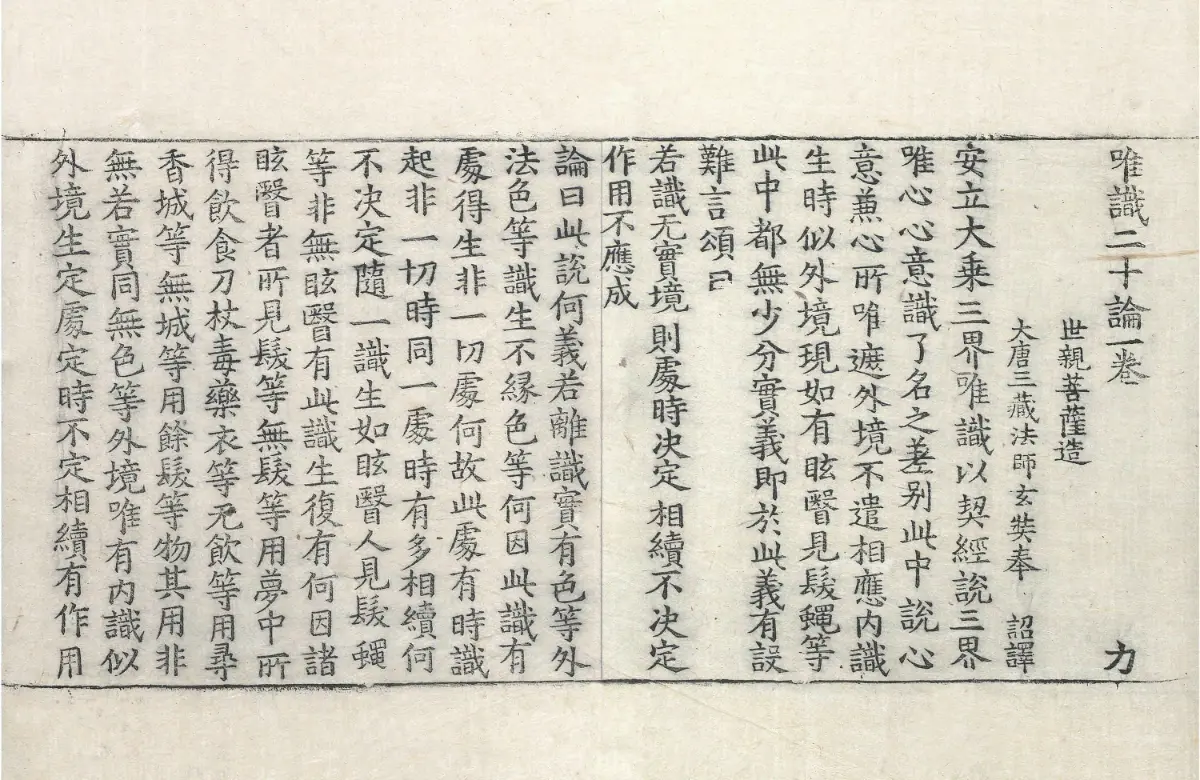 唯識二十論一卷 力
世親菩薩造
大唐三藏法師玄奘奉 詔譯
安立大乘三界唯識以契經說三界
唯心心意識了名之差别此中說心
意兼心所唯遮外境不遣相應内識
生時似外境現如有眩瞖見髮蠅等
此中都無少分實義即於此義有設
難言頌曰
若識无實境 則處時决定 相續不决定
作用不應成
論曰此說何義若離識實有色等外
法色等識生不縁色等何因此識有
處得生非一切處何故此處有時識
起非一切時同一處時有多相續何
不决定隨一識生如眩瞖人見髮蠅
等非無眩瞖有此識生復有何因諸
眩瞖者所見髮等無髮等用夢中所
得飲食刀杖毒藥衣等无飲等用尋
香城等無城等用餘髮等物其用非
無若實同無色等外境唯有内識似
外境生定處定時不定相續有作用